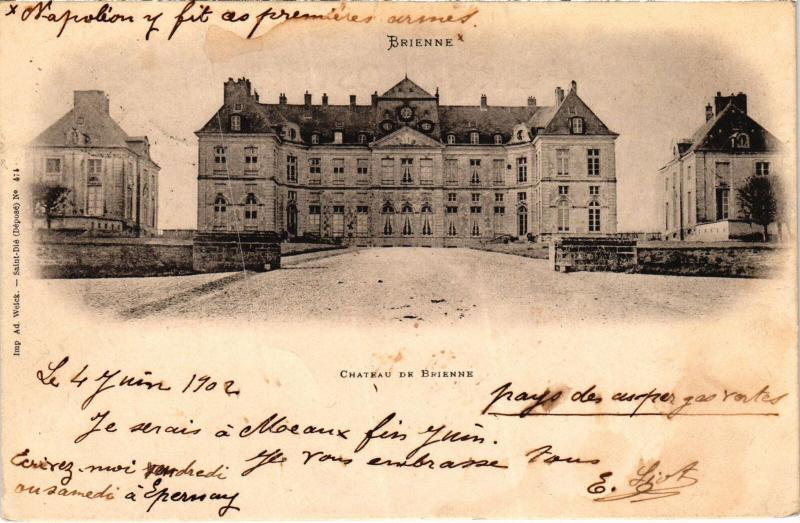 x Napoléon y fit ses premières armes.
BRIENNE x
Imp Ad. Weick. — Saint-Dié (Déposé) No 474
CHATEAU DE BRIENNE
Le 4 Juin 1902
pays des asperges vertes
Je serais à Meaux fin Juin.
Je vous embrasse tous
Ecrivez-moi vendredi
ou samedi à Epernay
E.